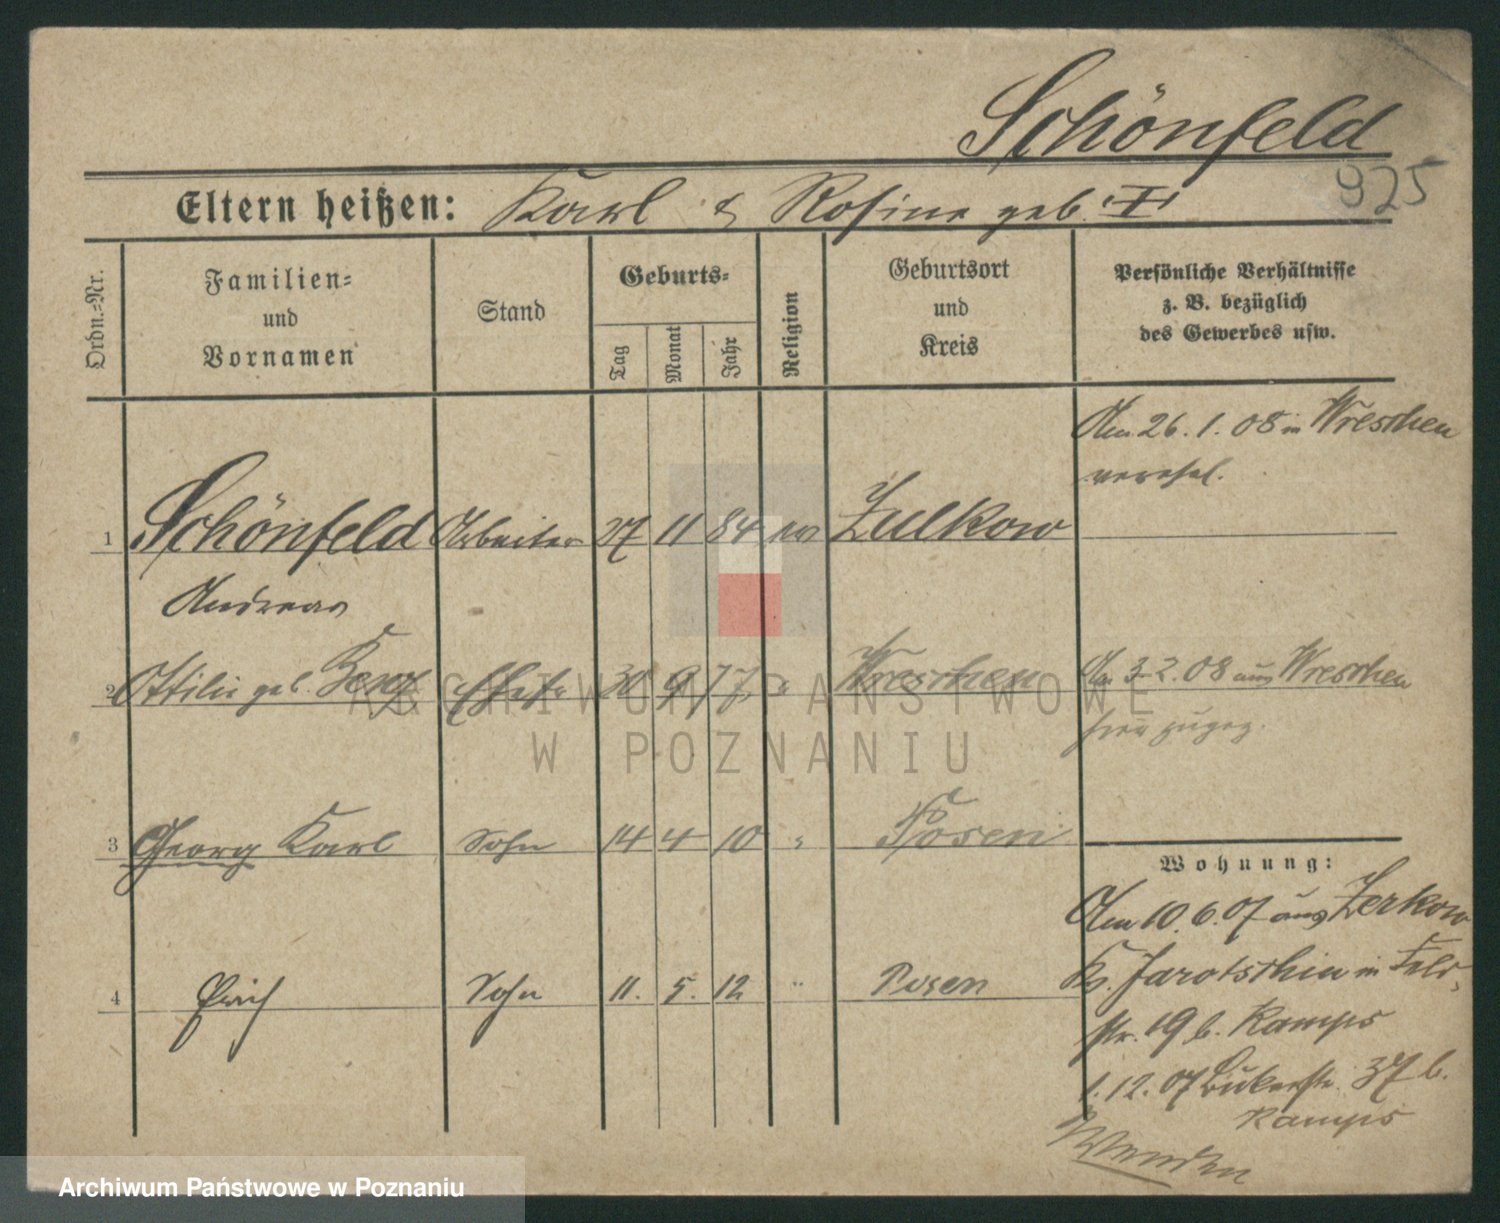 Schönfeld
925
Eltern heißen: Karl & Rosine geb.
Ordn.-Nr.
Familien-
und
Vornamen
Stand
Geburts-
Tag
Monat
Jahr
Religion
Geburtsort
und
Kreis
Persönliche Verhältnisse
z. B. bezüglich
des Gewerbes usw.
Am 26. 1. 08 in Wreschen
verehel.
1 Schönfeld Arbeiter 27 11 84 ev Zulkow
Andreas
2 Ottilie geb. Ehefr 30 9 77 " Wreschen
Am 3 2. 08 aus Wreschen
hier zugez.
3 Georg Karl Sohn 14 4 10 " Posen
4 Erich Sohn 11. 5. 12 " Posen
Wohnung:
Am 10. 6. 07 aus Zerkow
Kr. Jarotschin in Feld-
str. 19 b. Kamps
1. 12. 07 Bukerstr. 37 b.
Kamps
Wenden
ARCHIWUM PAŃSTWOWE
W POZNANIU
Archiwum Państwowe w Poznaniu